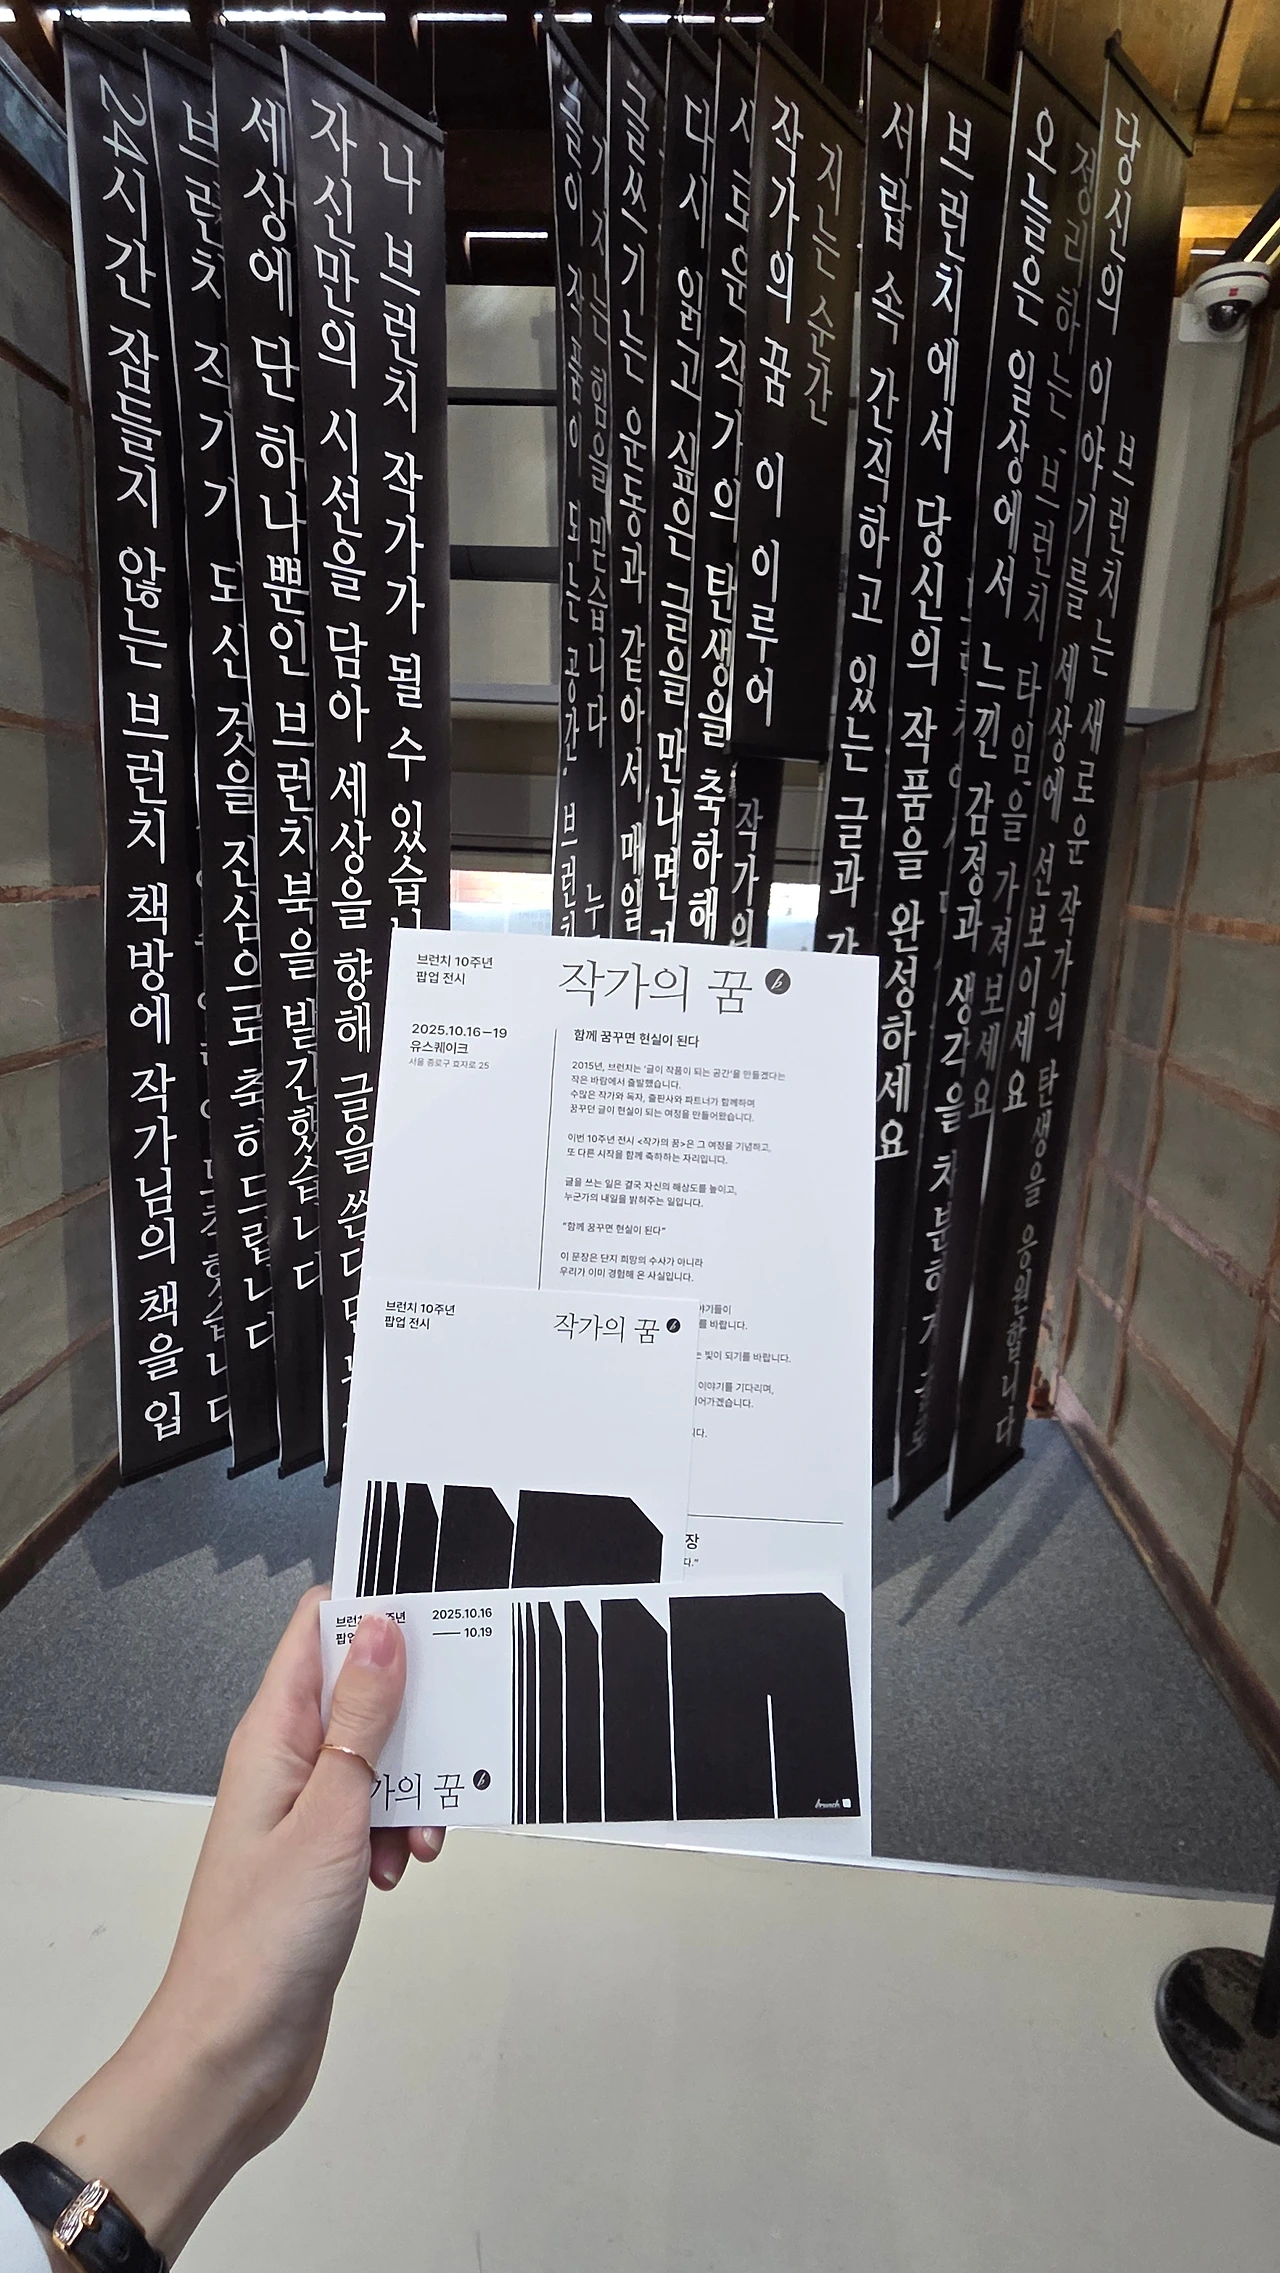 24시간 잠들지 않는 브런치 책방에 작가님의 책을 입
브런치 작가가 되신 것을 진심으로 축하드립니다
세상에 단 하나뿐인 브런치북을 발간했습니다
자신만의 시선을 담아 세상을 향해 글을 쓴다면
나 브런치 작가가 될 수 있습
글이 작품이 되는 공간, 브런치
가지는 힘을 믿습니다
글쓰기는 운동과 같아서 매일
다시 읽고 싶은 글을 만나면
새로운 작가의 탄생을 축하해
작가의 꿈이 이루어
지는 순간
작가의
서랍 속 간직하고 있는 글과
브런치에서 당신의 작품을 완성하세요
오늘은 일상에서 느낀 감정과 생각을 차분하게
정리하는, 브런치 타임,을 가져보세요
당신의 이야기를 세상에 선보이세요
브런치는 새로운 작가의 탄생을 응원합니다
브런치 10주년
팝업 전시
작가의 꿈 b
2025.10.16–19
유스퀘이크
서울 종로구 효자로 25
함께 꿈꾸면 현실이 된다
2015년, 브런치는 '글이 작품이 되는 공간'을 만들겠다는
작은 바람에서 출발했습니다.
수많은 작가와 독자, 출판사와 파트너가 함께하며
꿈꾸던 글이 현실이 되는 여정을 만들어왔습니다.
이번 10주년 전시 <작가의 꿈>은 그 여정을 기념하고,
또 다른 시작을 함께 축하하는 자리입니다.
글을 쓰는 일은 결국 자신의 해상도를 높이고,
누군가의 내일을 밝혀주는 일입니다.
"함께 꿈꾸면 현실이 된다"
이 문장은 단지 희망의 수사가 아니라
우리가 이미 경험해 온 사실입니다.
야기들이
를 바랍니다.
는 빛이 되기를 바랍니다.
이야기를 기다리며,
어가겠습니다.
니다.
장
다."
브런치 10주년
팝업 전시
작가의 꿈 b
브런 주년
팝업
2025.10.16
— 10.19
가의 꿈 b
brunch